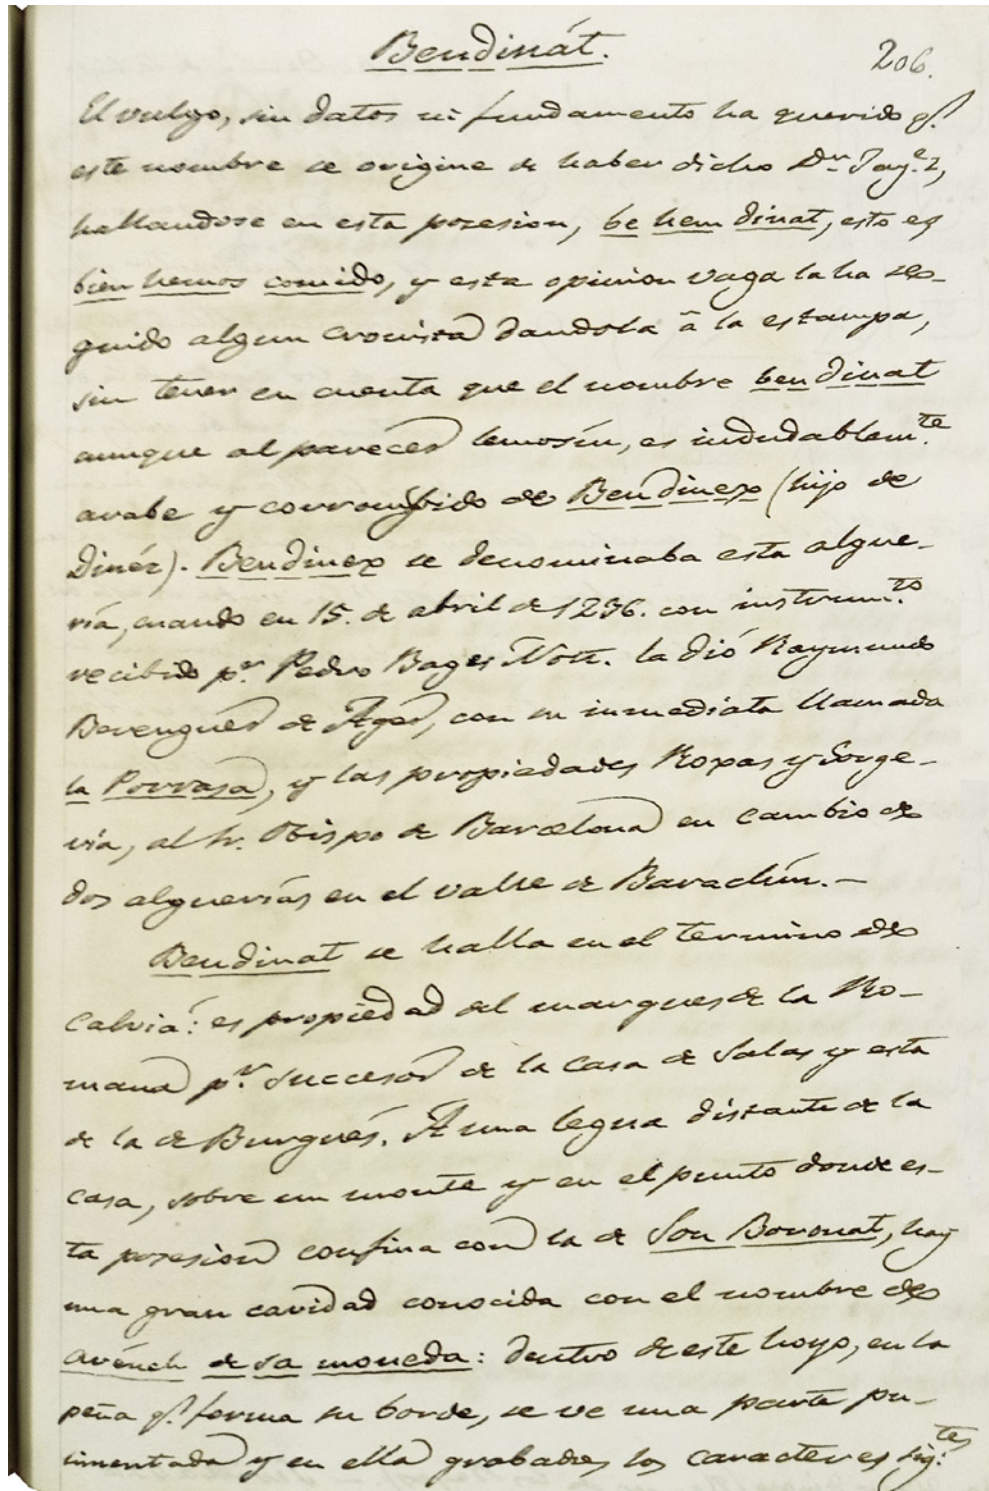 Bendinát.
206.
El vulgo, sin datos ni fundamento ha querido q.e
este nombre se origine de haber dicho Dn. Jay.e I,
hallandose en esta posesion, be hem dinat, esto es
bien hemos comido, y esta opinion vaga la ha se-
guido algun cronista dandola á la estampa,
sin tener en cuenta que el nombre ben dinat
aunque al parecer lemosin, es indudablem.te
arabe y corrompido de Bendinex (hijo de
Dinéx). Bendinex se denominaba esta alque-
ría, cuando en 15. de abril de 1236. con instrum.to
recibido p.r Pedro Bages Nott. la dió Raymundo
Berenguer de Ager, con su inmediata llamada
la Porrasa, y las propiedades Ropas y Sorge-
via, al Sr. Obispo de Barcelona en cambio de
dos alquerías en el valle de Baraclúm.—
Bendinat se halla en el termino de
Calviá: es propiedad del marques de la Ro-
mana p.r succesor de la casa de Salas y esta
de la de Burgués. A una legua distante de la
casa, sobre un monte y en el punto donde es-
ta posesion confina con la de Son Boronat, hay
una gran cavidad conocida con el nombre de
avénch de sa moneda: dentro de este hoyo, en la
peña q.e forma su borde, se ve una parte pu-
imentada y en ella grabados los caracteres sig.tes